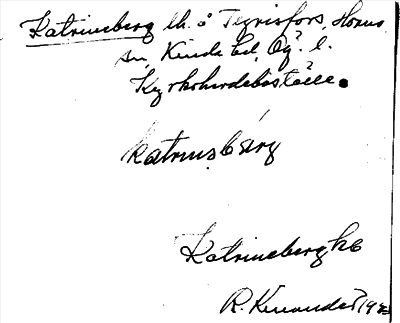 Katrineberg lh. å Tegrisfors, Horns
sn, Kinda hd, Ög. l.
Kyrkoherdeboställe.
katrinəbärg
Katrineberg hc
R. Kinander 19